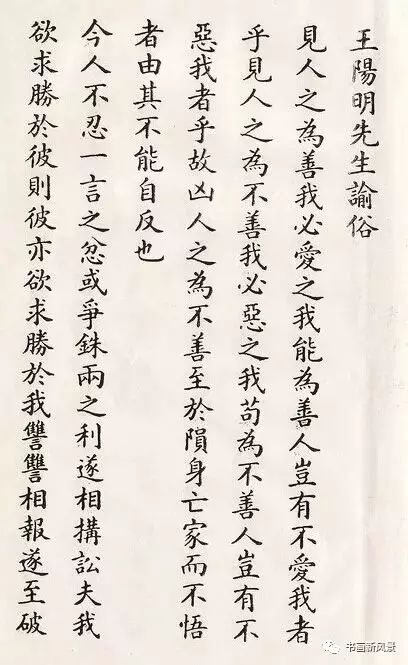 王陽明先生諭俗
見人之為善我必愛之我能為善人豈有不愛我者
乎見人之為不善我必惡之我苟為不善人豈有不
惡我者乎故凶人之為不善至於隕身亡家而不悟
者由其不能自反也
今人不忍一言之忿或爭銖兩之利遂相搆訟夫我
欲求勝於彼則彼亦欲求勝於我讐讐相報遂至破
书画新风景